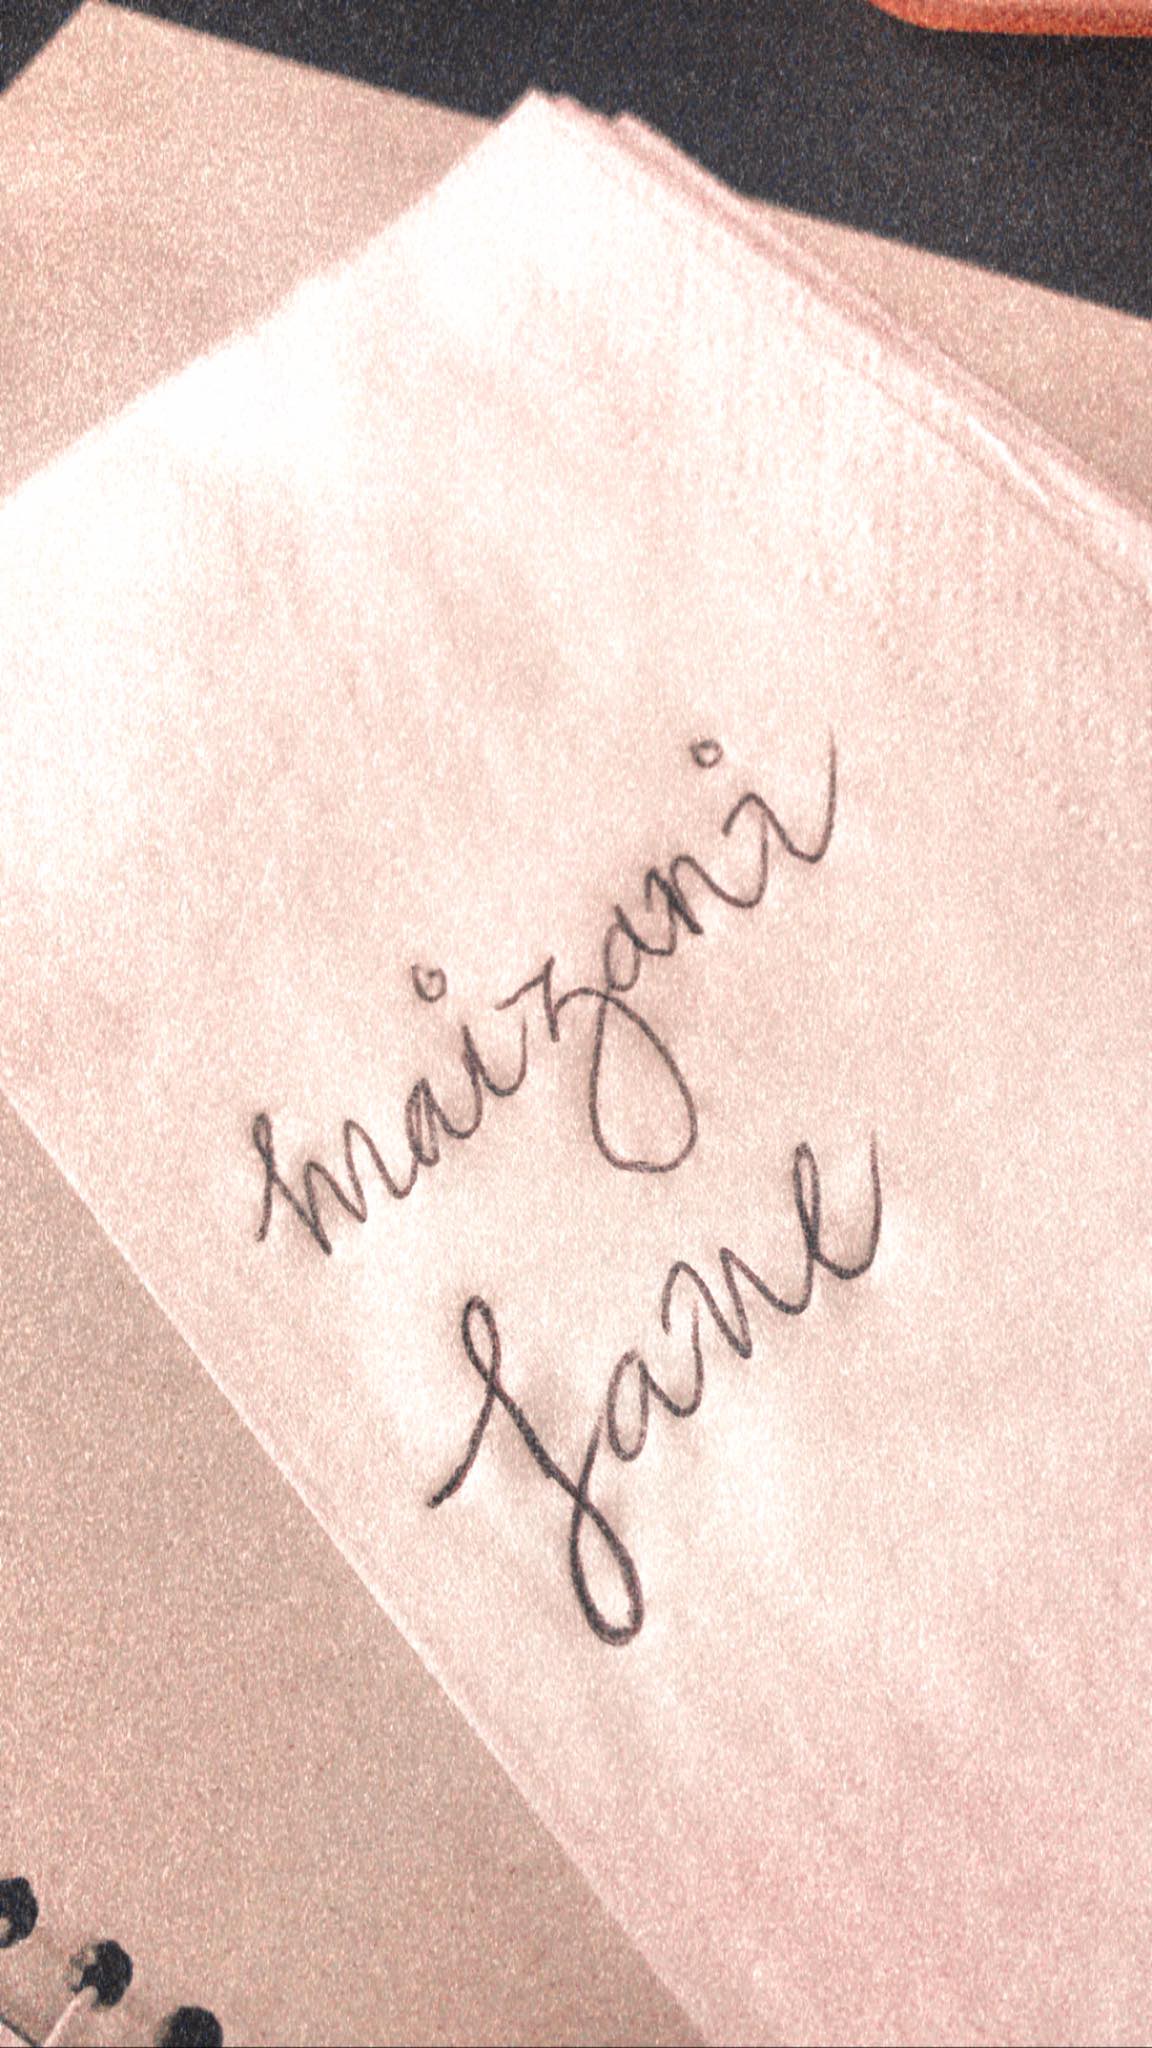 maizani
Jane